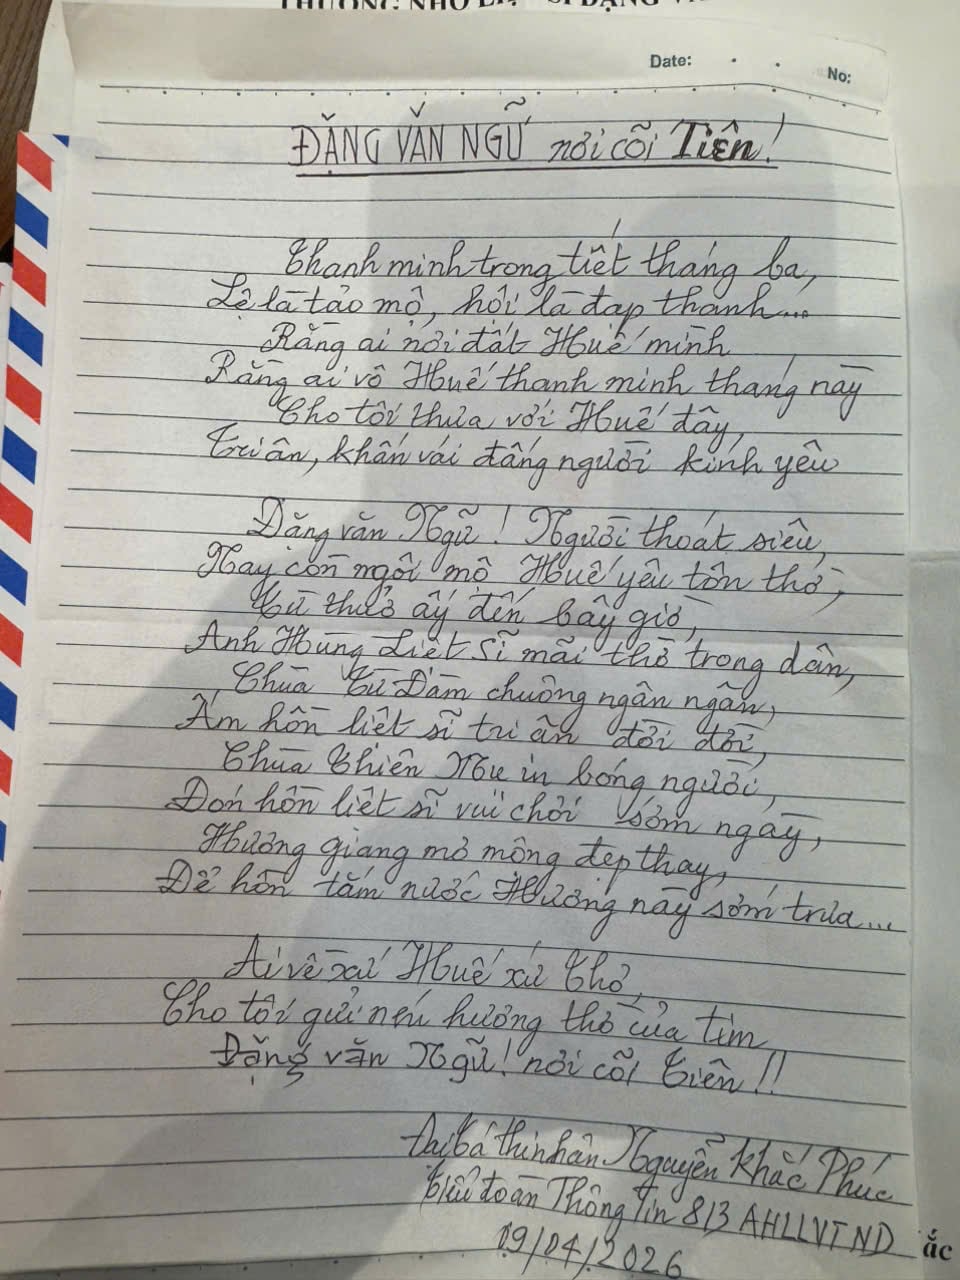 Date: . .
No:
ĐẶNG VĂN NGỮ nơi cõi Tiên!
Thanh minh trong tiết tháng ba,
Lễ là tảo mộ, hội là đạp thanh...
Rằng ai nơi đất Huế mình
Rằng ai vô Huế thanh minh tháng này
Cho tôi thưa với Huế đây,
Tri ân, khấn vái đấng người kính yêu
Đặng văn Ngữ! Người thoát siêu,
Nay còn ngôi mộ Huế yêu tôn thờ,
Từ thuở ấy đến bây giờ,
Anh Hùng Liệt Sĩ mãi thờ trong dân,
Chùa Từ Đàm chuông ngân ngân,
Ấm hồn liệt sĩ tri ân đời đời,
Chùa Thiên Mụ in bóng người,
Đón hồn liệt sĩ vui chơi sớm ngày,
Hương giang mơ mộng đẹp thay,
Để hồn tắm nước Hương này sớm trưa...
Ai về xứ Huế xứ Thơ,
Cho tôi gửi nén hương thờ của tim
Đặng văn Ngữ! nơi cõi Tiên!!
Đại tá thi nhân Nguyễn Khắc Phúc
Tiểu đoàn Thông Tin 813 AHLLVTND
09/04/2026
ắc